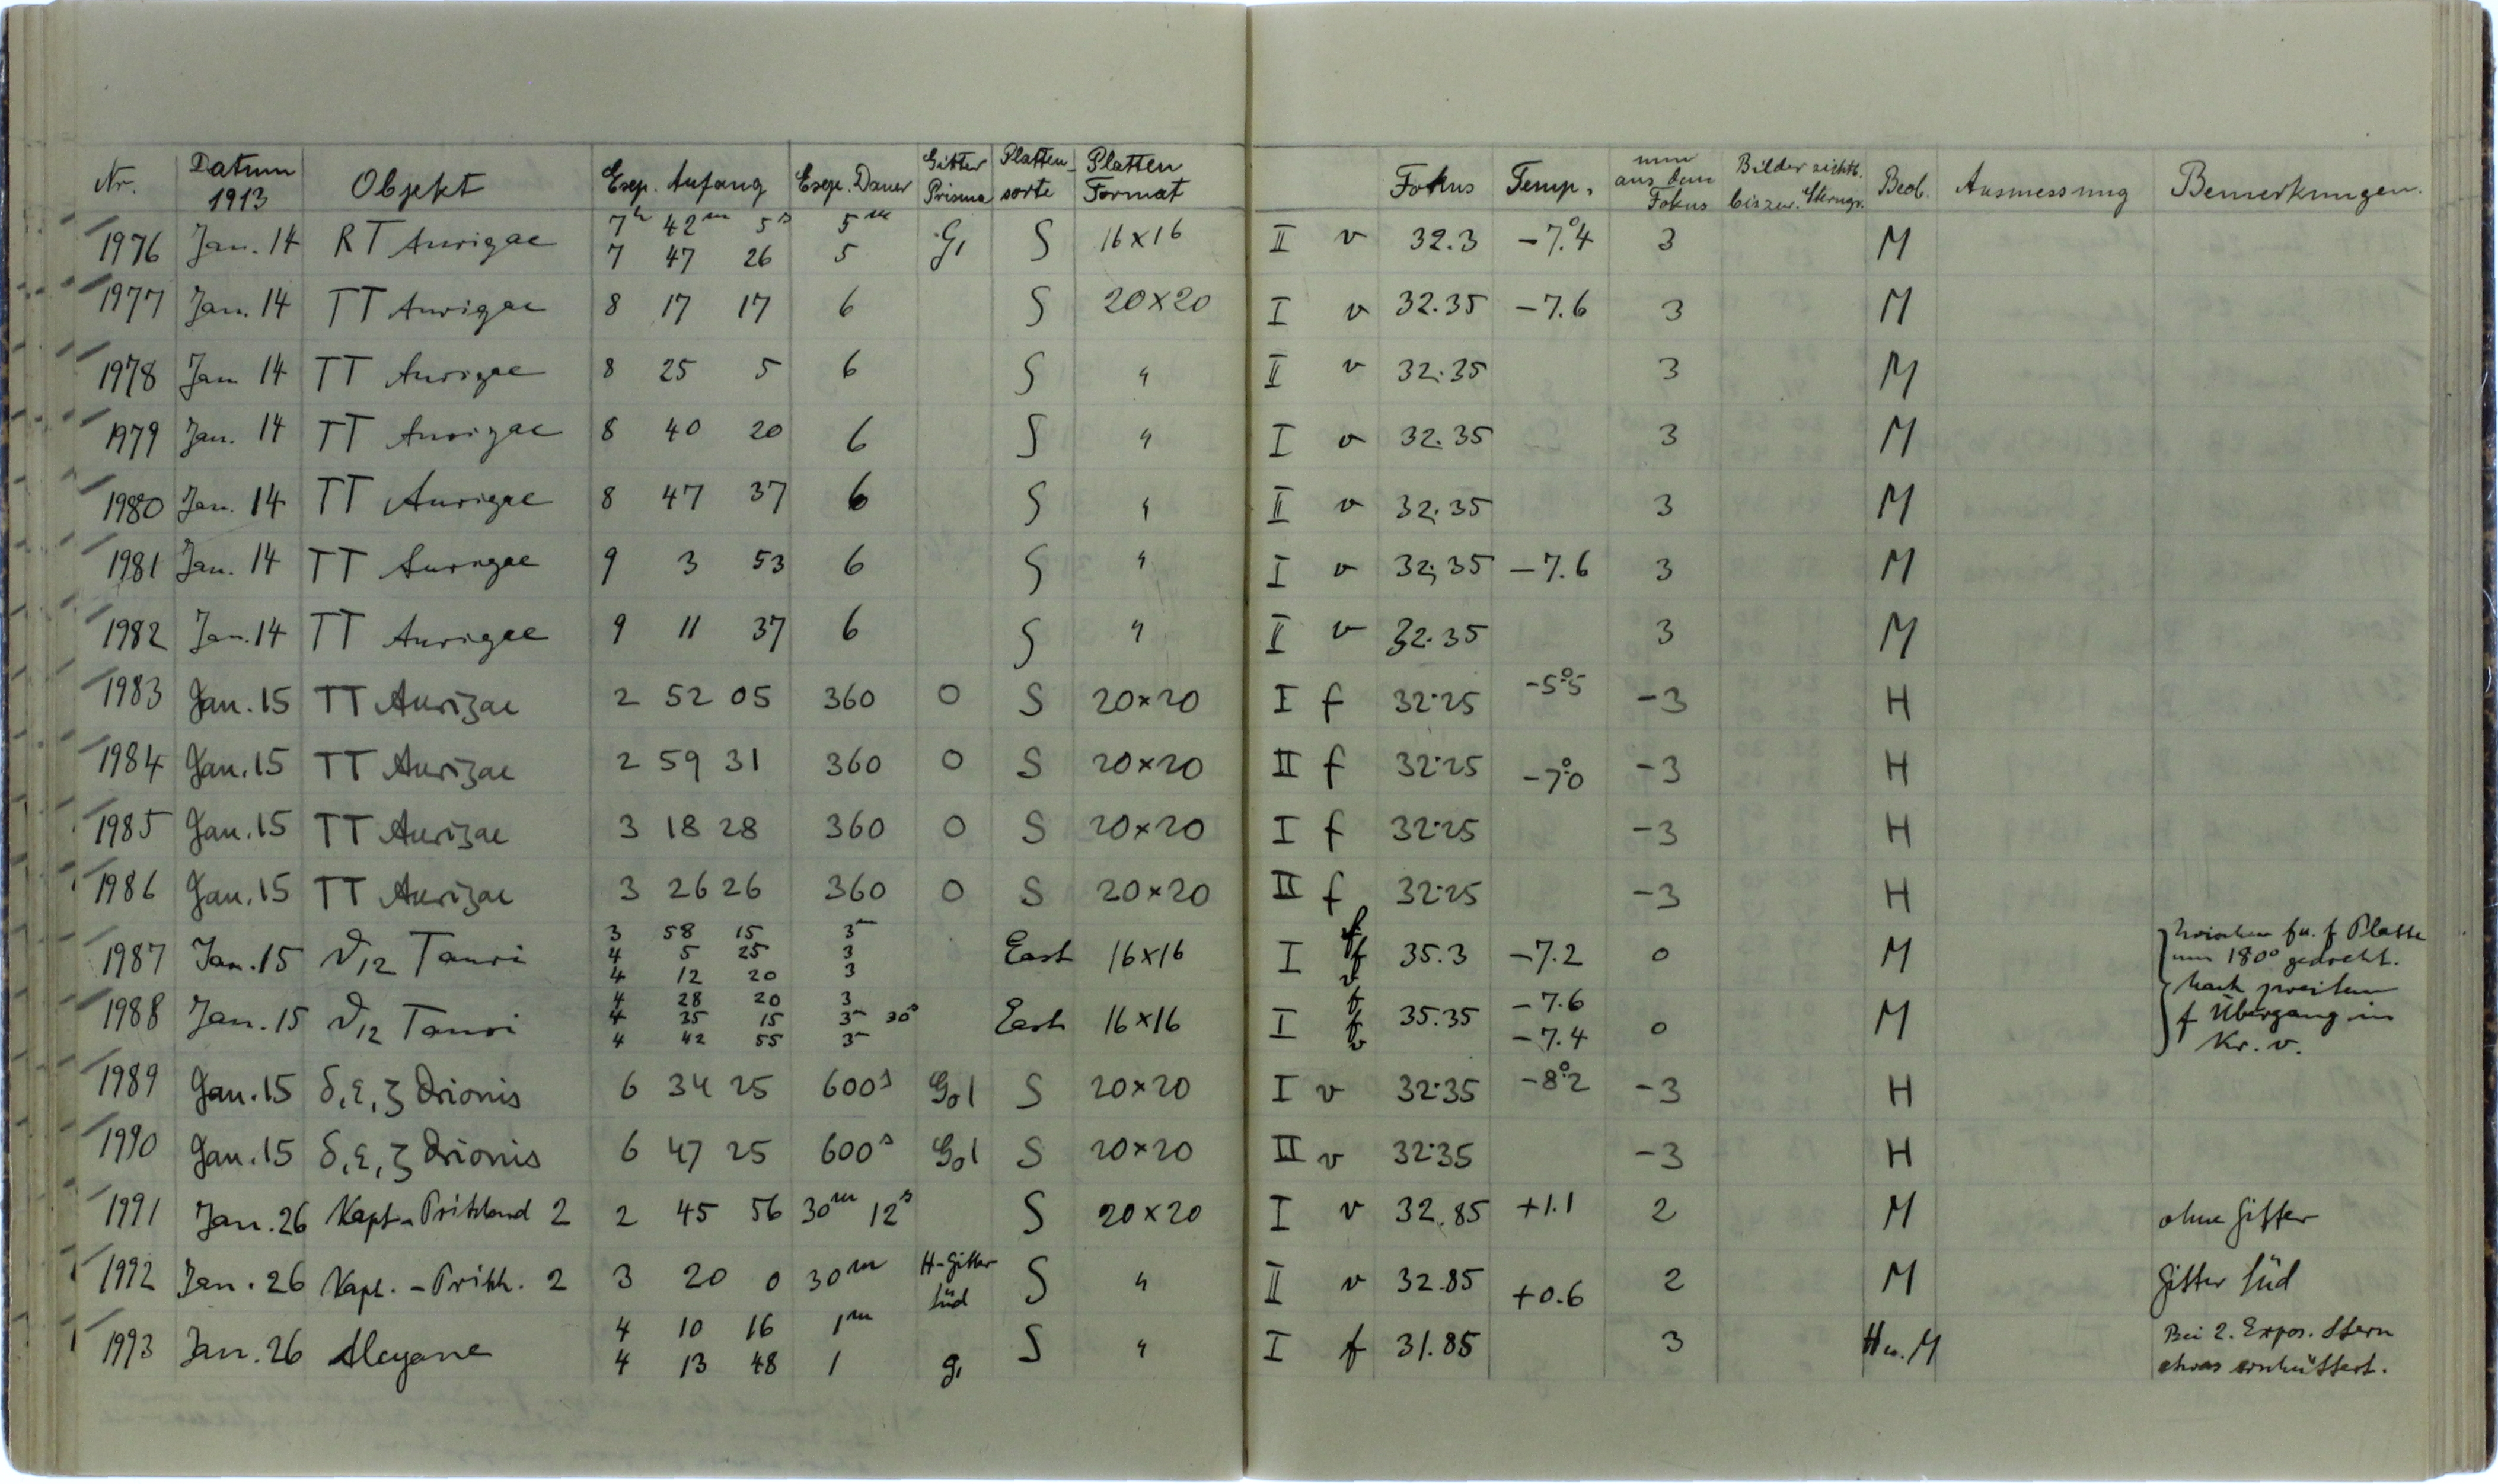 Nr. Datum 1913 Objekt Exp. Anfang Exp. Dauer Gitter Prisma Platten-sorte Platten Format Fokus Temp. mm aus dem Fokus Bilder sichtb. bis zur Beob. Ausmessung Bemerkungen.
1976 Jan. 14 RT Aurigae 7h 42m 5s 5m G1 S 16×16 II v 32.3 -7.°4 3 M
7 47 26 5
1977 Jan. 14 TT Aurigae 8 17 17 6 S 20×20 I v 32.35 -7.6 3 M
1978 Jan 14 TT Aurigae 8 25 5 6 S " II v 32.35 3 M
1979 Jan. 14 TT Aurigae 8 40 20 6 S " I v 32.35 3 M
1980 Jan. 14 TT Aurigae 8 47 37 6 S " II v 32.35 3 M
1981 Jan. 14 TT Aurigae 9 3 53 6 S " I v 32,35 -7.6 3 M
1982 Jan. 14 TT Aurigae 9 11 37 6 S " II v 32.35 3 M
1983 Jan. 15 TT Aurigae 2 52 05 360 0 S 20×20 I f 32.25 -5.°5 -3 H
1984 Jan. 15 TT Aurigae 2 59 31 360 0 S 20×20 II f 32.25 -7.°0 -3 H
1985 Jan. 15 TT Aurigae 3 18 28 360 0 S 20×20 I f 32.25 -3 H
1986 Jan. 15 TT Aurigae 3 26 26 360 0 S 20×20 II f 32.25 -3 H
3 58 15 3m f
1987 Jan. 15 ϑ12 Tauri 4 5 25 3 East 16×16 I f 35.3 -7.2 0 M Zwischen f u. f Platte
4 12 20 3 v um 180° gedreht.
4 28 20 3 f -7.6 Nach zweitem
1988 Jan. 15 ϑ12 Tauri 4 35 15 3m 30s East 16×16 I f 35.35 0 M f Übergang in
4 42 55 3m v -7.4 Kr. v.
1989 Jan. 15 δ, ε, ζ Orionis 6 34 25 600s G01 S 20×20 I v 32.35 -8.°2 -3 H
1990 Jan. 15 δ, ε, ζ Orionis 6 47 25 600s G01 S 20×20 II v 32.35 -3 H
1991 Jan. 26 Kapt.-Pritchard 2 2 45 56 30m 12s S 20×20 I v 32.85 +1.1 2 M ohne Gitter
1992 Jan. 26 Kapt.-Pritch. 2 3 20 0 30m H-Gitter Süd S " II v 32.85 +0.6 2 M Gitter Süd
4 10 16 1m Bei 2. Expos. Stern
1993 Jan. 26 Alcyone 4 13 48 1 g1 S " I f 31.85 3 H u. M etwas erschüttert.